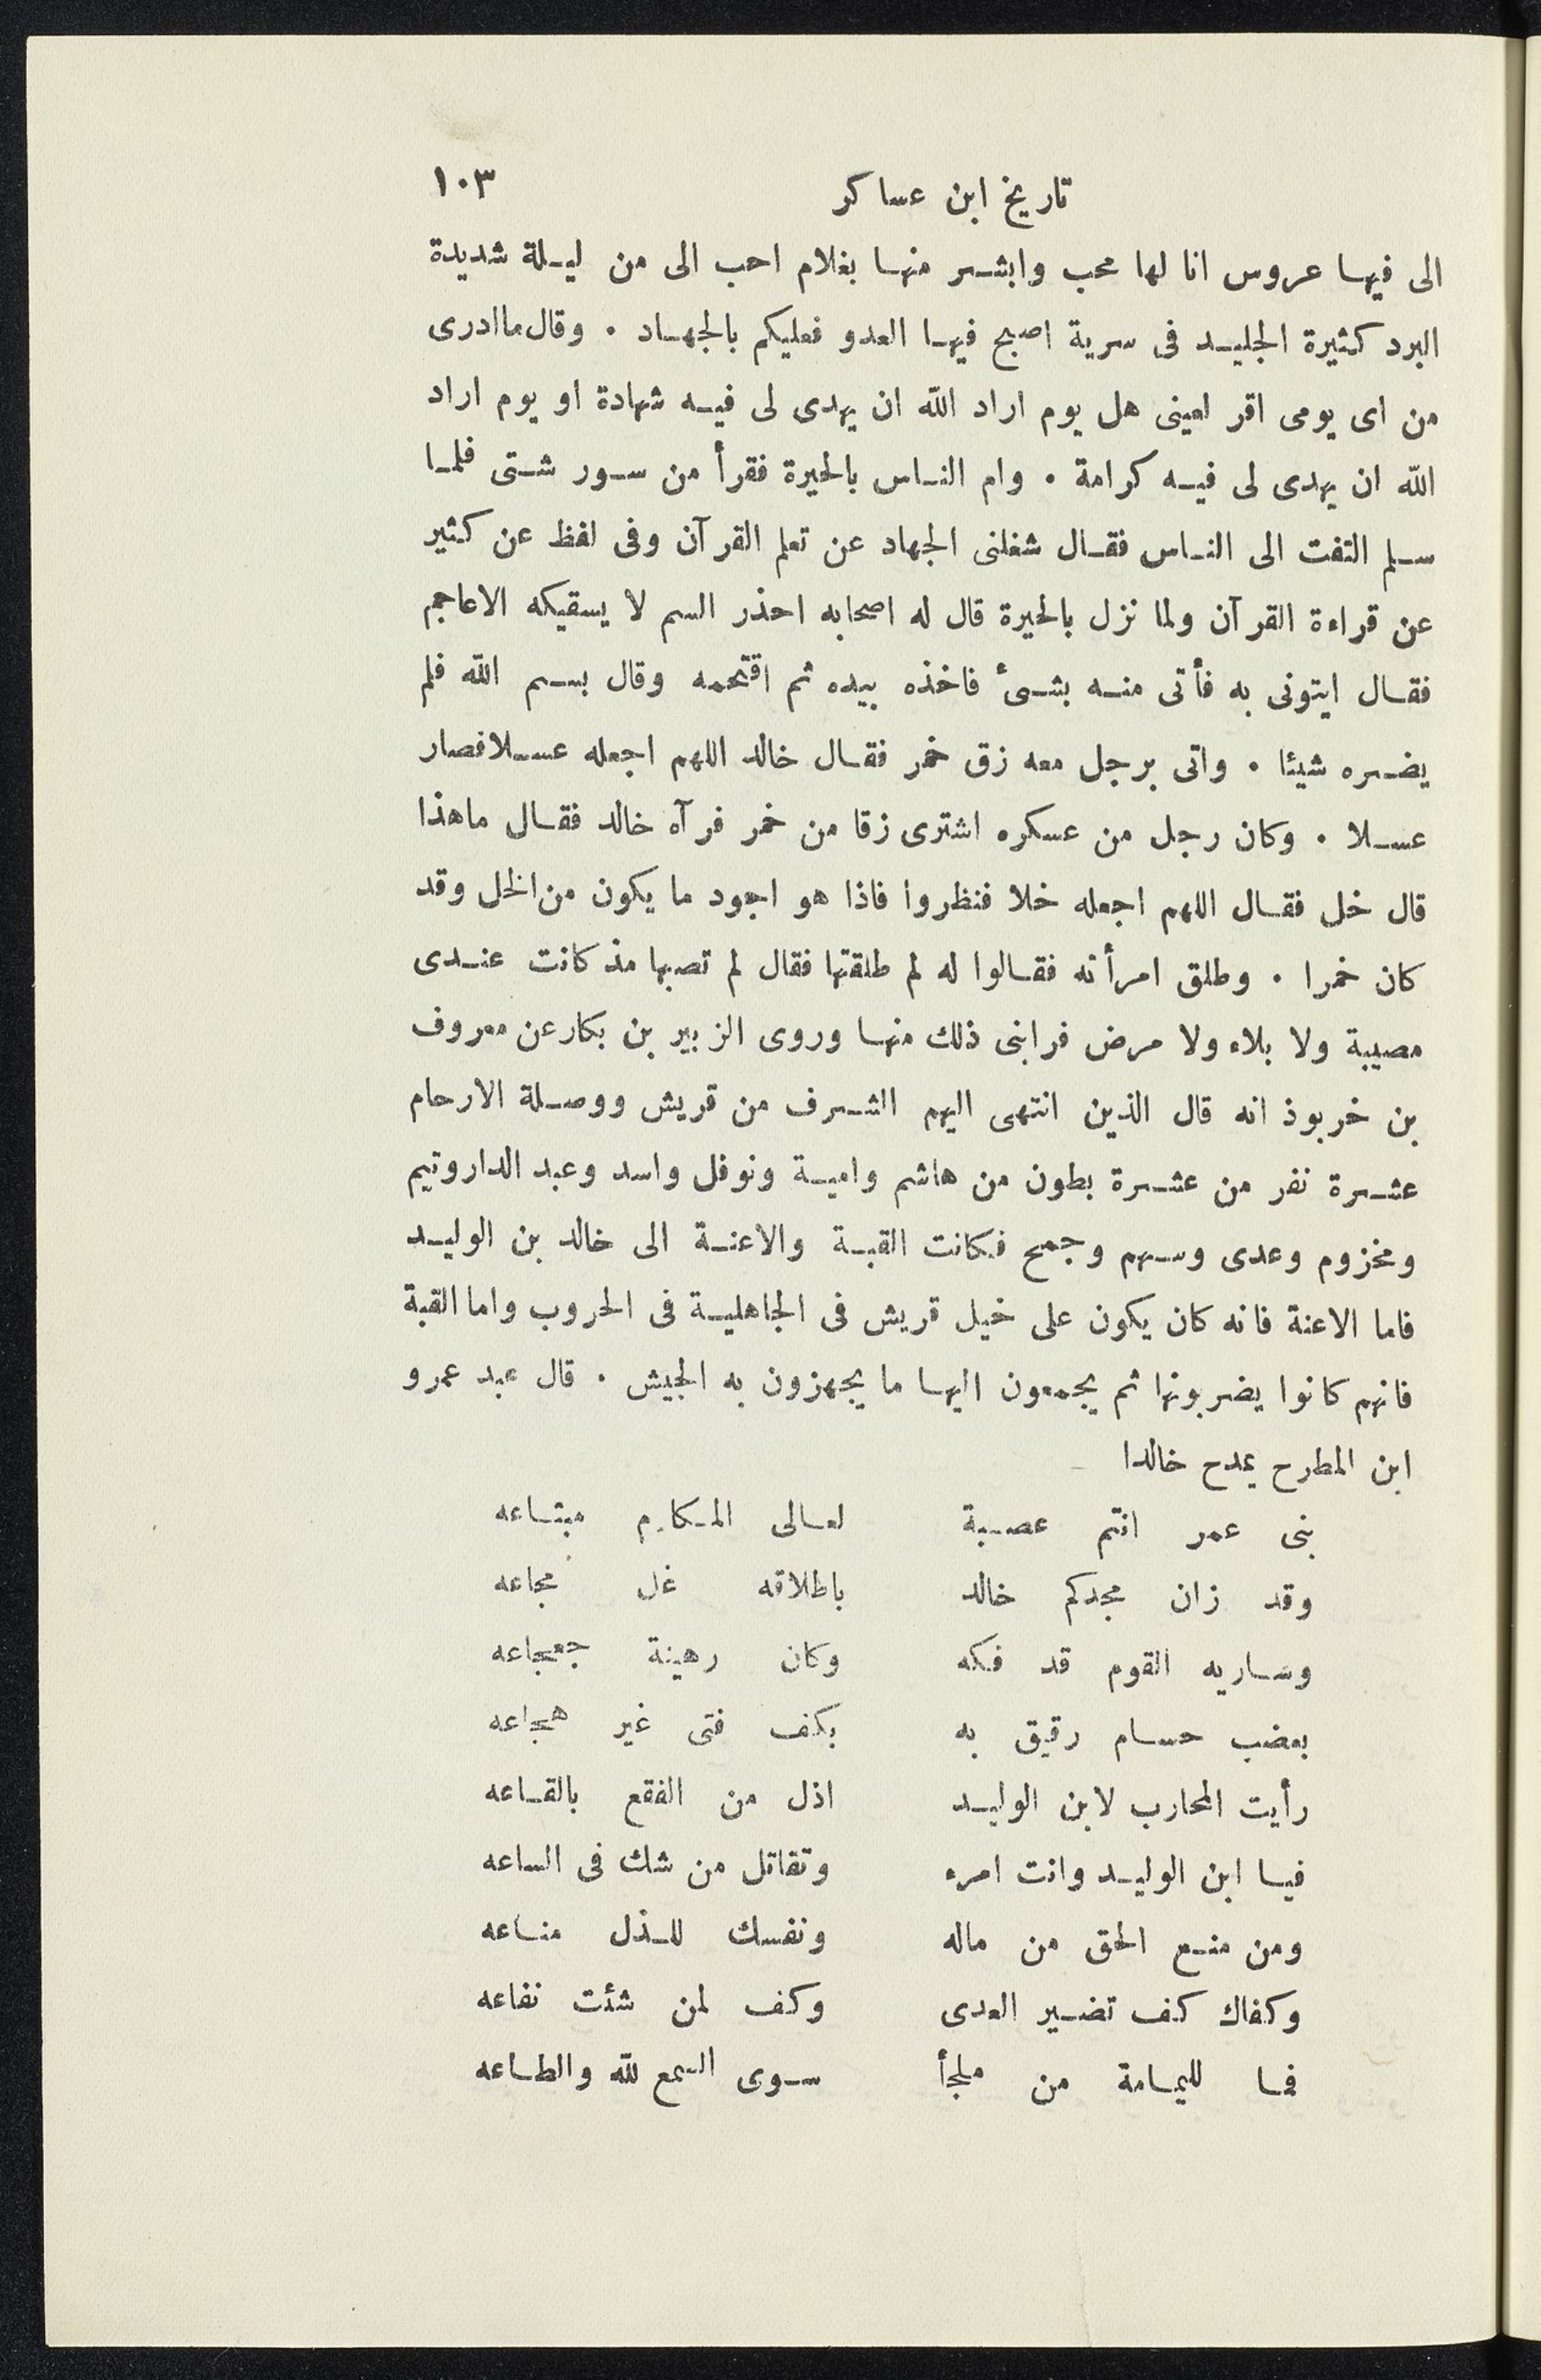 تاريخ ابن عساكر ١٠٣
الى فيها عروس انا لها محب وابشر منها بغلام احب الى من ليلة شديدة
البرد كثيرة الجليد فى سرية اصبح فيها العدو فعليكم بالجهاد . وقال ما ادرى
من اى يومى اقر لعينى هل يوم اراد الله ان يهدى لى فيه شهادة او يوم اراد
الله ان يهدى لى فيه كرامة . وام الناس بالحيرة فقرأ من سور شتى فلما
سلم التفت الى الناس فقال شغلنى الجهاد عن تعلم القرآن وفى لفظ عن كثير
عن قراءة القرآن ولما نزل بالحيرة قال له اصحابه احذر السم لا يسقيكه الاعاجم
فقال ايتونى به فأتى منه بشئ فاخذه بيده ثم اقتحمه وقال بسم الله فلم
يضره شيئا . واتى برجل معه زق خمر فقال خالد اللهم اجعله عسلا فصار
عسلا . وكان رجل من عسكره اشترى زقا من خمر فرآه خالد فقال ما هذا
قال خل فقال اللهم اجعله خلا فنظروا فاذا هو اجود ما يكون من الخل وقد
كان خمرا . وطلق امرأته فقالوا له لم طلقتها فقال لم تصبها مذ كانت عندى
مصيبة ولا بلاء ولا مرض فرابنى ذلك منها وروى الزبير بن بكار عن معروف
بن خربوذ انه قال الذين انتهى اليهم الشرف من قريش ووصلة الارحام
عشرة نفر من عشرة بطون من هاشم وامية ونوفل واسد وعبد الدار وتيم
ومخزوم وعدى وسهم وجمح فكانت القبة والاعنة الى خالد بن الوليد
فاما الاعنة فانه كان يكون على خيل قريش فى الجاهلية فى الحروب واما القبة
فانهم كانوا يضربونها ثم يجمعون اليها ما يجهزون به الجيش . قال عبد عمرو
ابن المطرح يمدح خالدا
بنى عمر انتم عصبة لعالى المكارم مبتاعه
وقد زان مجدكم خالد باطلاقه غل مجاعه
وساريه القوم قد فكه وكان رهينة جعجاعه
بعضب حسام رقيق به بكف فتى غير هجاعه
رأيت المحارب لابن الوليد اذل من الفقع بالقاعه
فيا ابن الوليد وانت امرء وتقاتل من شك فى الساعه
ومن منع الحق من ماله ونفسك للذل مناعه
وكفاك كف تضير العدى وكف لمن شئت نفاعه
فما لليمامة من ملجأ سوى السمع لله والطاعه